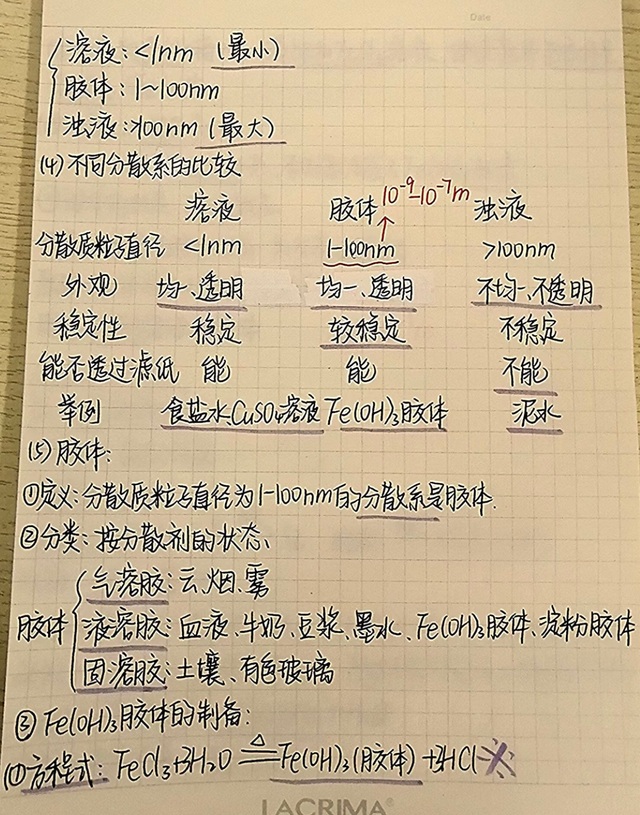 Date
溶液:<1nm (最小)
胶体:1~100nm
浊液:>100nm (最大)
(4)不同分散系的比较
溶液 胶体 10⁻⁹-10⁻⁷m 浊液
分散质粒子直径 <1nm 1-100nm >100nm
外观 均一、透明 均一、透明 不均一、不透明
稳定性 稳定 较稳定 不稳定
能否透过滤纸 能 能 不能
举例 食盐水、CuSO₄溶液 Fe(OH)₃胶体 泥水
(5)胶体:
①定义:分散质粒子直径为1-100nm的分散系是胶体.
②分类:按分散剂的状态、
气溶胶:云、烟、雾
胶体 液溶胶:血液、牛奶、豆浆、墨水、Fe(OH)₃胶体、淀粉胶体
固溶胶:土壤、有色玻璃
③Fe(OH)₃胶体的制备:
(1)方程式:FeCl₃+3H₂O ≜ Fe(OH)₃(胶体)+3HCl
LACRIMA®